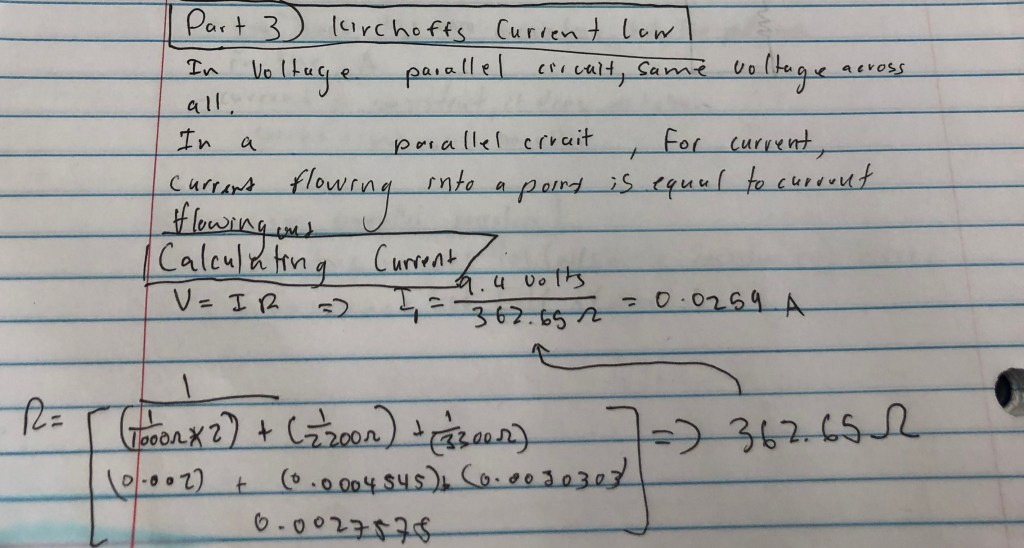 Part 3) Kirchoffs Current Law
In Voltage parallel circuit, same voltage across
all.
In a parallel circuit, For current,
current flowing into a point is equal to current
flowing out
Calculating Current
V = IR => I₁ = 9.4 volts / 362.65 Ω = 0.0259 A
R = 1
[(1/1000Ω × 2) + (1/2200Ω) + (1/3300Ω)] => 362.65 Ω
(0.002) + (0.0004545) + (0.0030303)
0.0027575